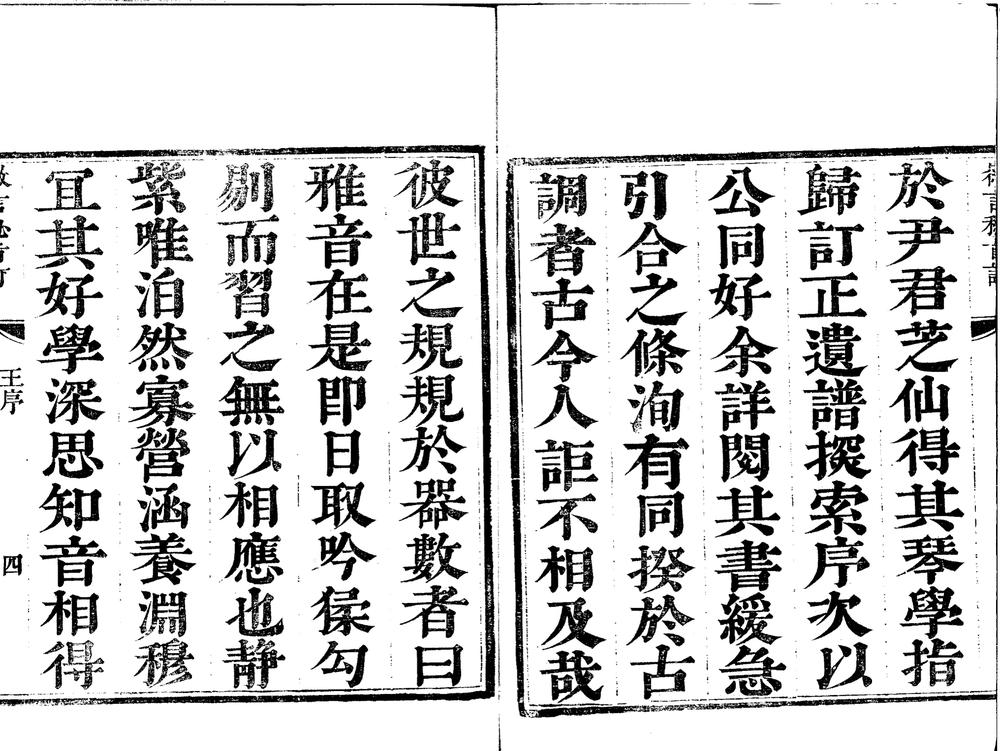 於尹君芝仙得其琴學指
歸訂正遺譜探索序次以
公同好余詳閱其書緩急
引合之條洵有同揆於古
調者古今人詎不相及哉
彼世之規規於器數者曰
雅音在是即日取吟猱勾
剔而習之無以相應也靜
紫唯泊然寡營涵養淵穆
冝其好學深思知音相得
王序
四